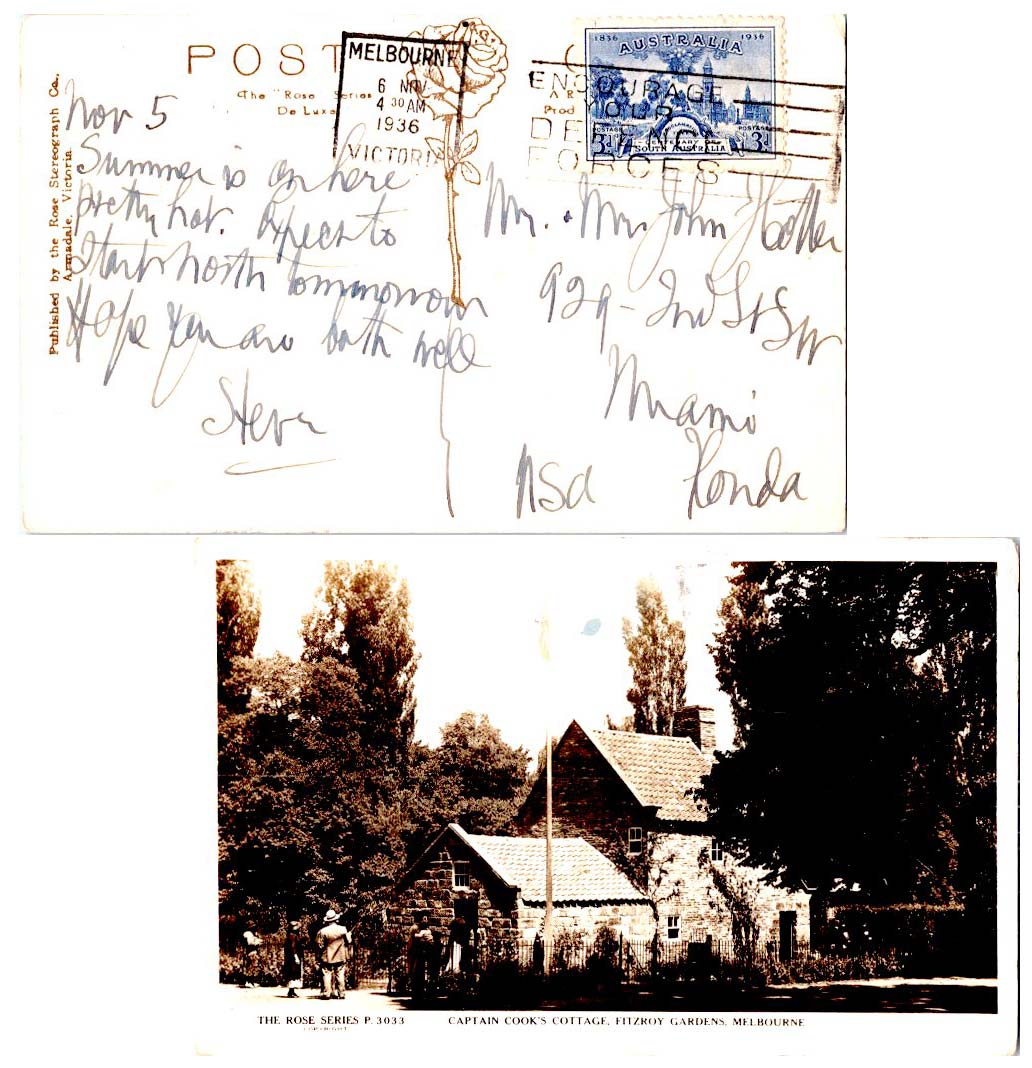 POST
The "Rose Series
De Luxe
Published by the Rose Stereograph Co.,
Armadale, Victoria.
MELBOURNE
6 NOV
4 30 AM
1936
VICTORIA
ENCOURAGE
YOUR
DEFENCE
FORCES
1836 1936
AUSTRALIA
POSTAGE POSTAGE
3d 3d
CENTENARY OF
SOUTH AUSTRALIA
A R
Prod
Nov 5
Summer is on here
pretty hot. Expect to
Start North tommorrow
Hope you are both well
Steve
Mr. & Mrs John
929 - 2nd St SW
Miami
USA Florida
THE ROSE SERIES P. 3033
COPYRIGHT
CAPTAIN COOK'S COTTAGE, FITZROY GARDENS, MELBOURNE